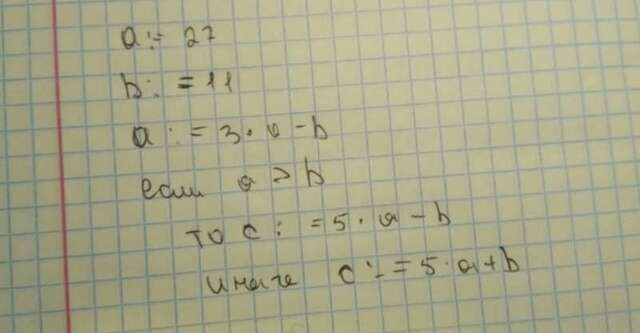 a := 27
b : = 11
a : = 3 · a - b
если a > b
то c : = 5 · a - b
иначе c := 5 · a + b